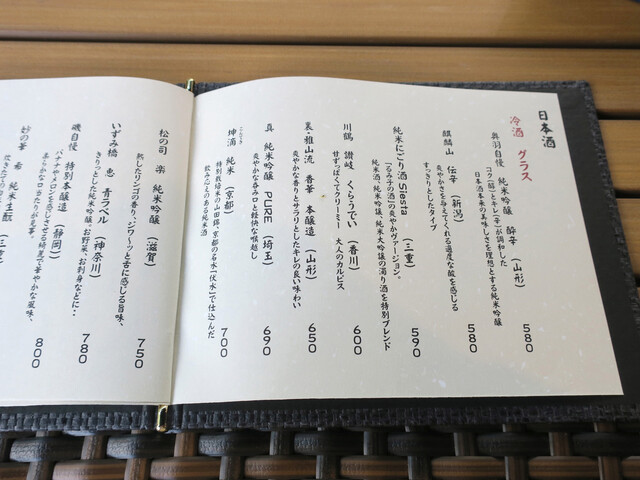 日本酒
冷酒 グラス
奥羽自慢 純米吟醸 酔辛 （山形）
コク（醇）とキレ（辛）が調和した
日本酒本来の美味しさを理想とする純米吟醸
580
麒麟山 伝辛（新潟）
爽やかさを与えてくれる適度な酸を感じる
すっきりとしたタイプ
580
純米にごり酒 Siesta （三重）
「るみ子の酒」の爽やかヴァージョン。
純米酒、純米吟醸、純米大吟醸の濁り酒を特別ブレンド
590
川鶴 讃岐 くらうでい （香川）
甘ずっぱくてクリーミー 大人のカルピス
600
裏・雅山流 香華 本醸造 （山形）
爽やかな香りとサラリとしたキレの良い味わい
650
真 純米吟醸 PURE （埼玉）
爽やかな呑み口と軽快な喉越し
690
坤滴 純米 （京都）
こんてき
特別栽培米の山田錦、京都の名水「伏水」で仕込んだ
飲みごたえのある純米酒
700
松の司 楽 純米吟醸 （滋賀）
熟したリンゴの香り、ジワ〜っと舌に感じる旨味、
750
いずみ橋 恵 青ラベル （神奈川）
きりっとした純米吟醸、お野菜、お刺身などに・・
780
磯自慢 特別本醸造 （静岡）
バナナやメロンを感じさせる綺麗で華やかな風味、
柔らかな口当たりが見事。
800
妙の華 希 純米生酛 （三重）
炊きたての